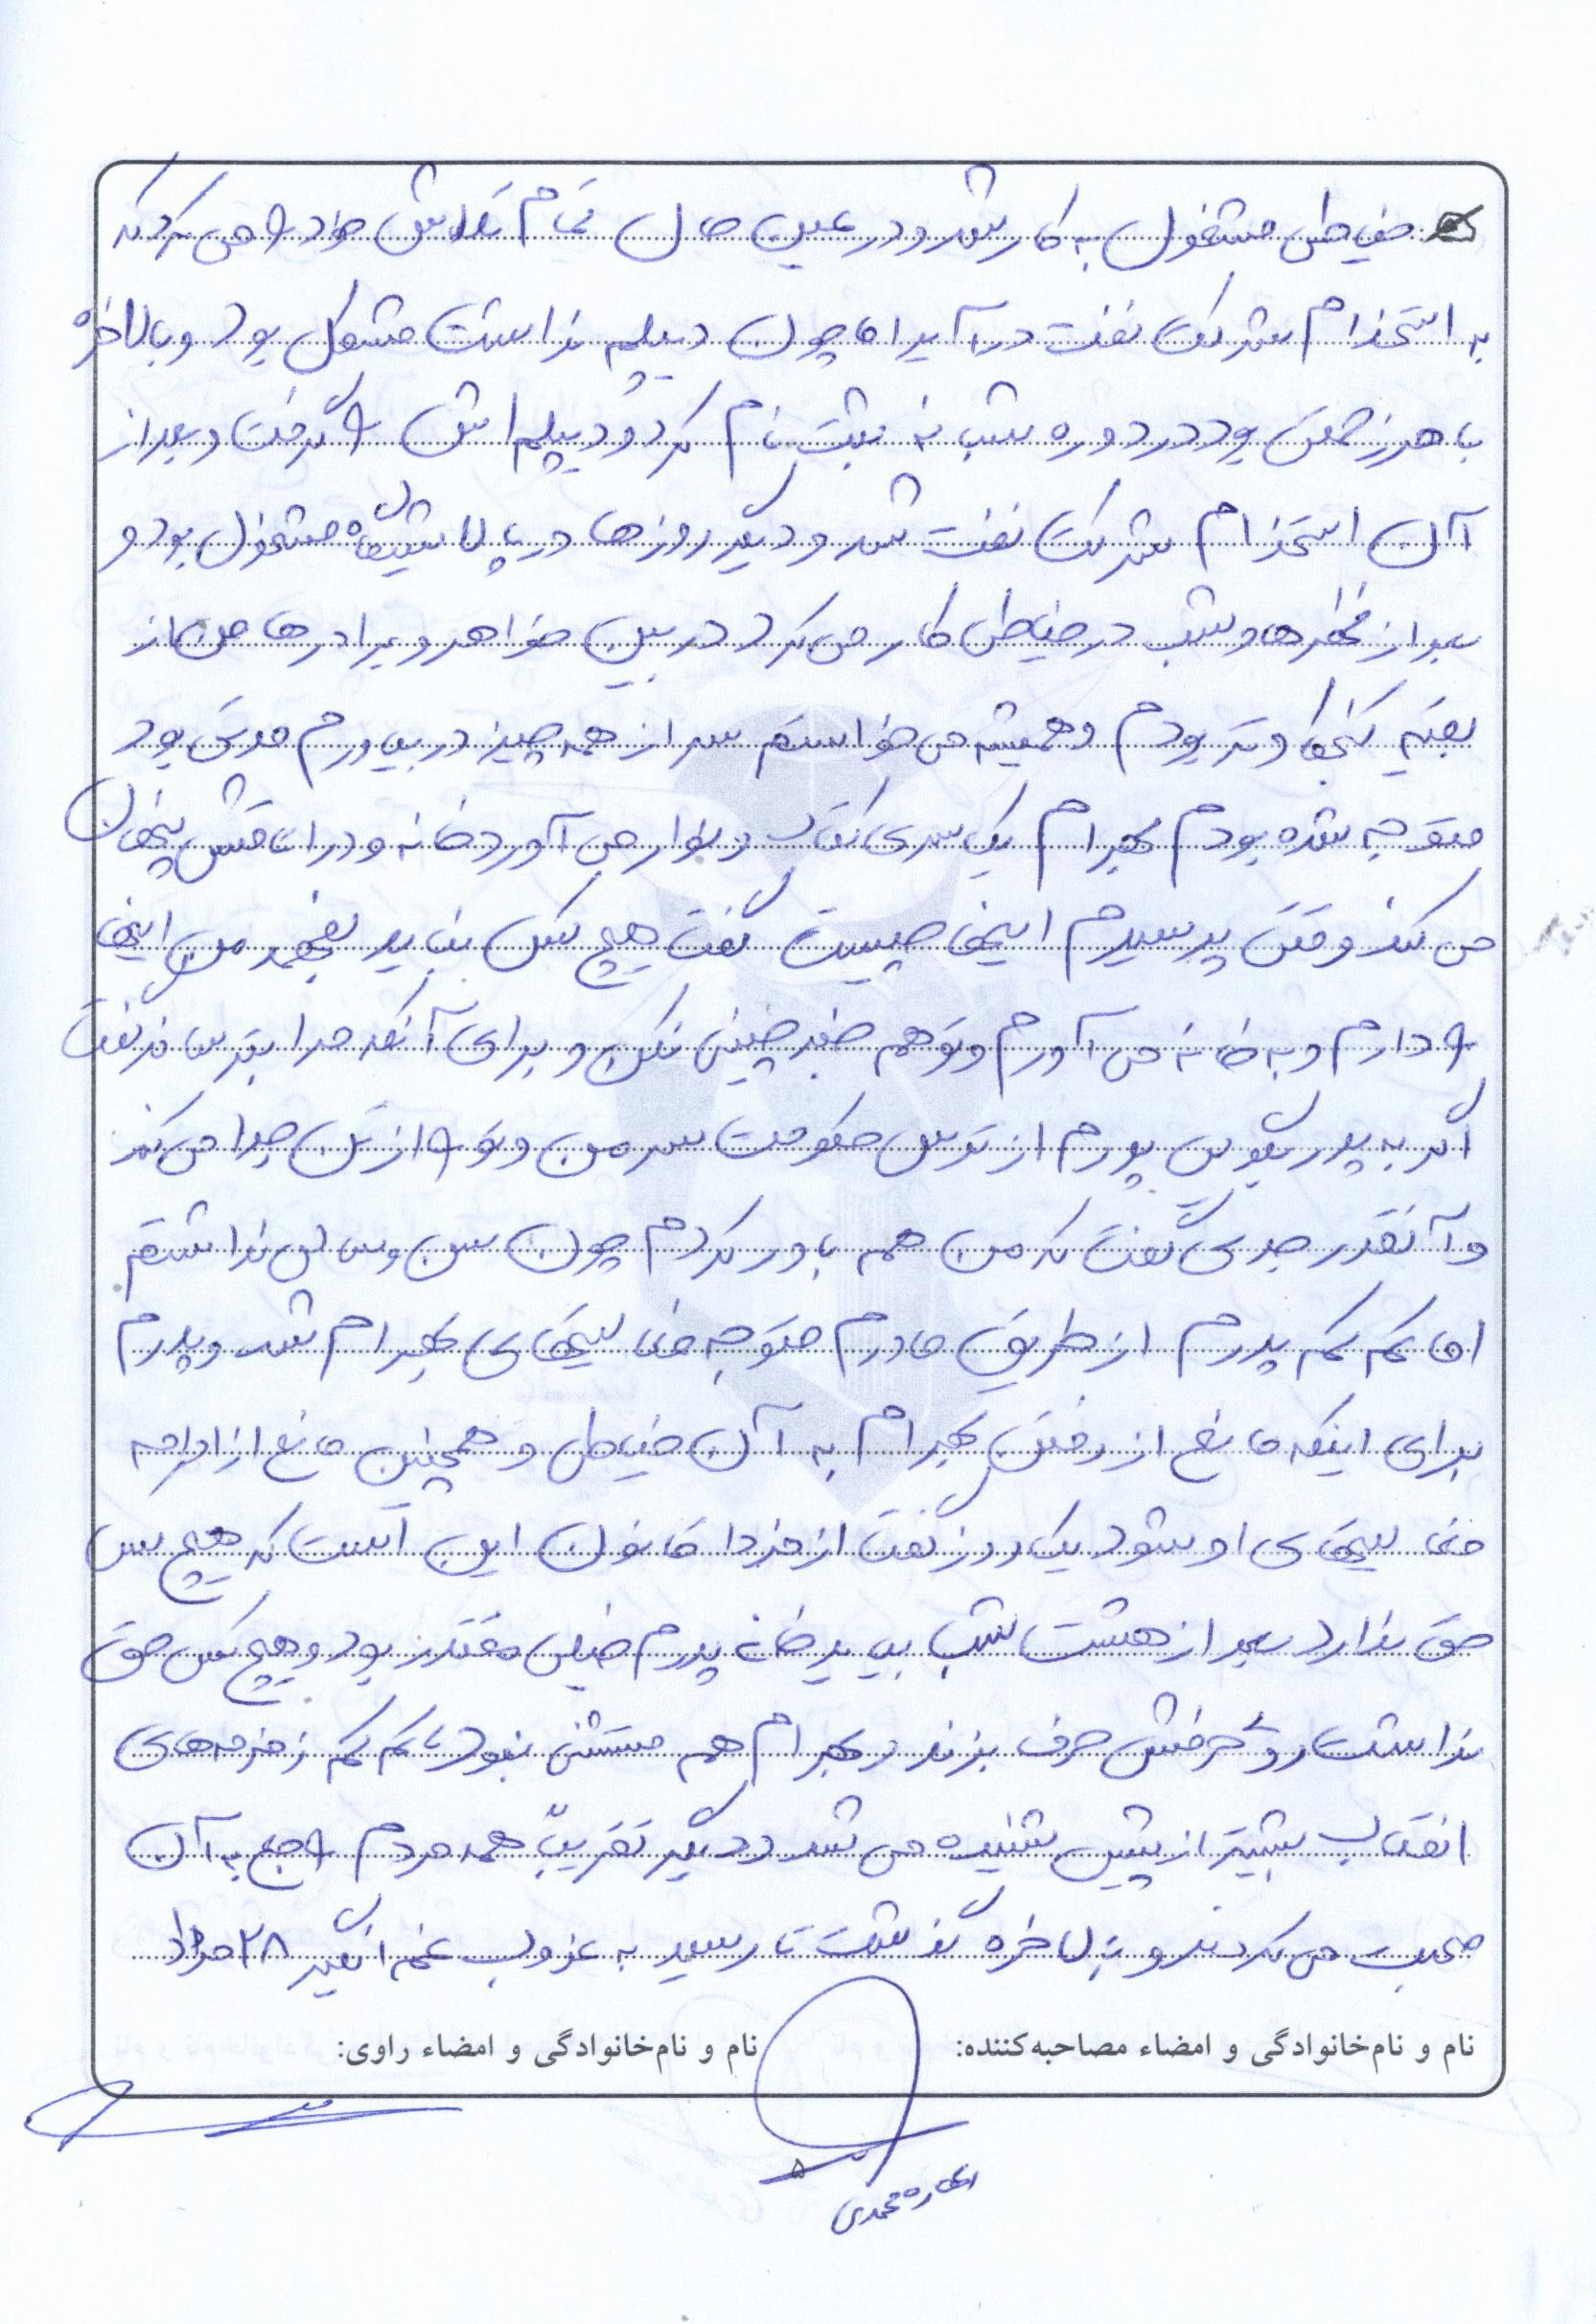 خیاطی مشغول به کار شد و در عین حال تمام تلاش خود را می کرد که
به استخدام شرکت نفت درآید اما چون دیپلم نداشت مشکل بود و بالاخره
با هر زحمتی بود در دوره شبانه ثبت نام کرد و دیپلم اش را گرفت و بعد از
آن استخدام شرکت نفت شد و دیگر روزها در پالایشگاه مشغول بود و
بعد از ظهرها و شب در خیاطی کار می کرد در بین خواهر و برادرها من از
بقیه کنجکاوتر بودم و همیشه می خواستم سر از همه چیز در بیاورم مدتی بود
متوجه شده بودم بهرام یک سری کتاب و نوار می آورد خانه و در اتاقش پنهان
می کند وقتی پرسیدم اینها چیست گفت هیچ کس نباید بفهمد من اینها
را دارم و به خانه می آورم و تو هم خبر چینی نکن و برای آنکه مرا بترساند گفت
اگر به پدر بگویی پدرم از ترس حکومت سر من و تو را از تن جدا می کند
و آنقدر جدی گفت که من هم باور کردم چون سن و سالی نداشتم
اما کم کم پدرم از طریق مادرم متوجه فعالیتهای بهرام شد و پدرم
برای اینکه مانع از رفتن بهرام به آن خیاطی و همچنین مانع از ادامه
فعالیتهای او شود یک روز گفت از فردا قانون این است که هیچ کس
حق ندارد بعد از هشت شب بیاید خانه پدرم خیلی مقتدر بود و هیچ کس حق
نداشت روی حرفش حرف بزند و بهرام هم مستثنی نبود تا کم کم زمزمه های
انقلاب بیشتر از پیش شنیده می شد و دیگر تقریباً همه مردم راجع به آن
صحبت می کردند و بالاخره گذشت تا رسید به غروب غم انگیز ۲۸ مرداد
نام و نام‌خانوادگی و امضاء مصاحبه‌کننده:
نام و نام‌خانوادگی و امضاء راوی:
۵
محمدی